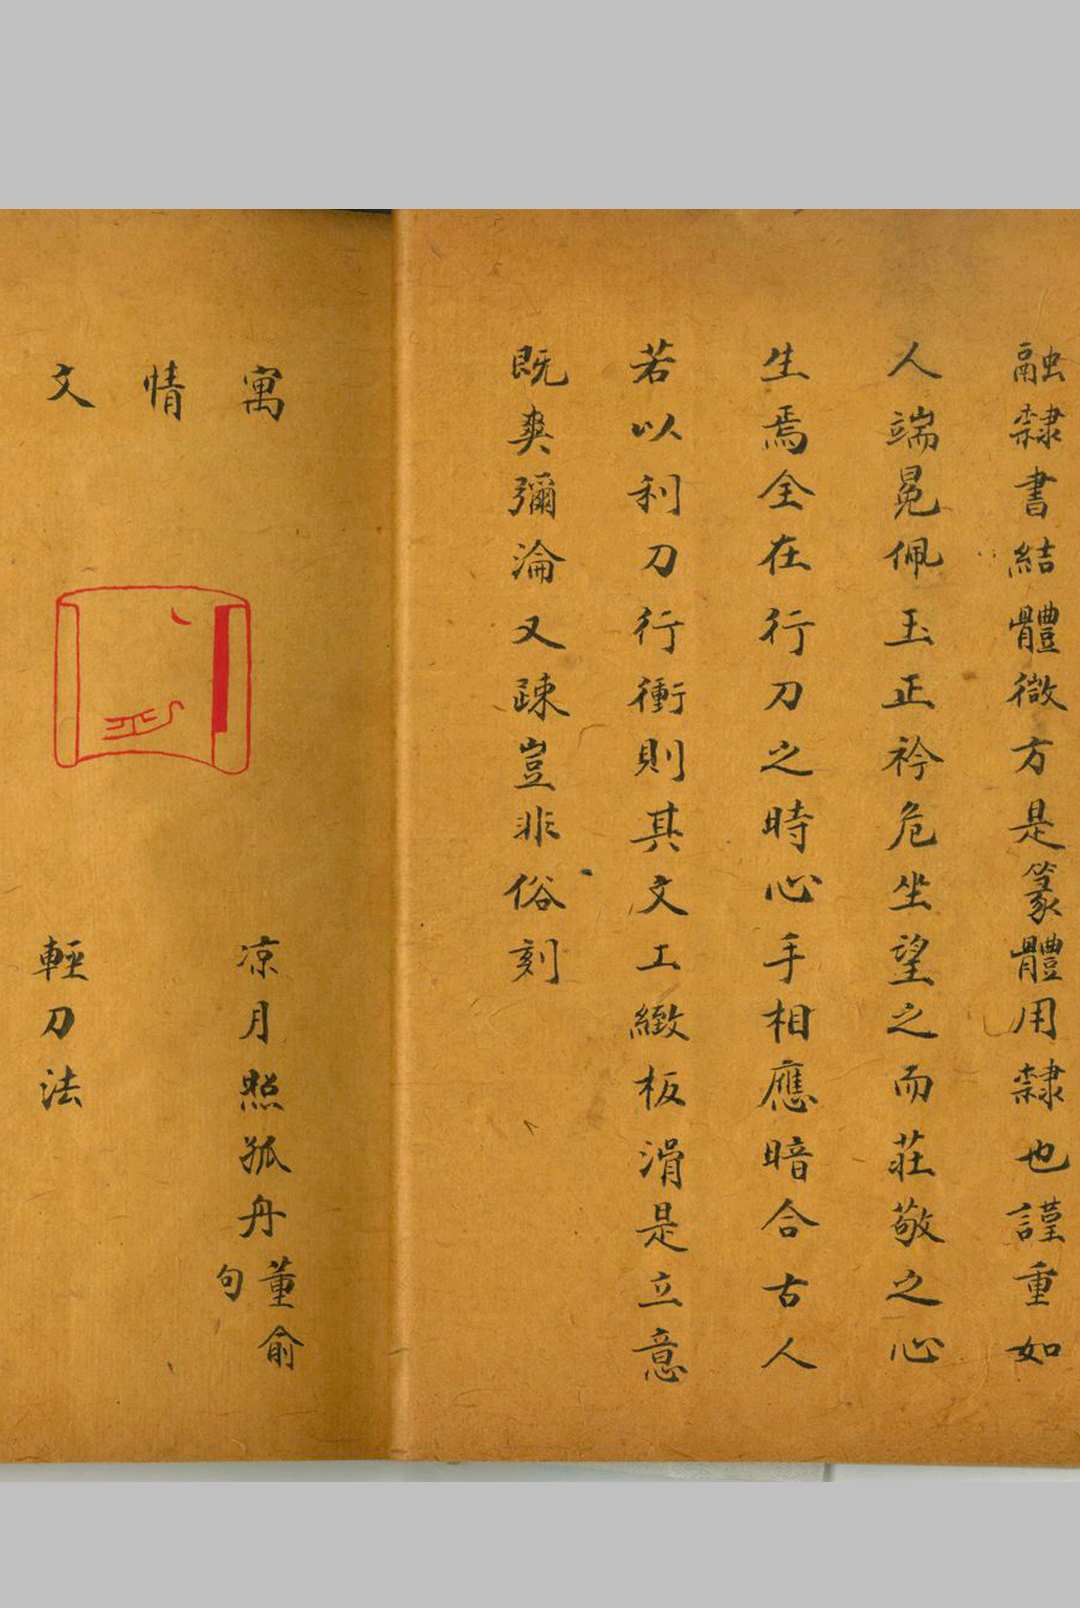 融隸書結體微方是篆體用隸也謹重如
人端冕佩玉正衿危坐望之而莊敬之心
生焉全在行刀之時心手相應暗合古人
若以利刀行衝則其文工緻板滑是立意
既爽彌淪又疎豈非俗刻
寓情文
凉月照孤舟
董俞句
輕刀法